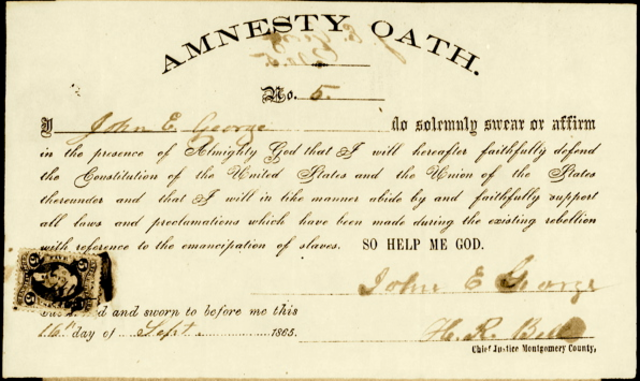 AMNESTY OATH.
No. 5.
I John E. George do solemnly swear or affirm
in the presence of Almighty God that I will hereafter faithfully defend
the Constitution of the United States and the Union of the States
thereunder and that I will in like manner abide by and faithfully support
all laws and proclamations which have been made during the existing rebellion
with reference to the emancipation of slaves. SO HELP ME GOD.
John E George
and sworn to before me this
16th day of Sept 1865.
H. R. Bell
Chief Justice Montgomery County,
FIVE
5 5